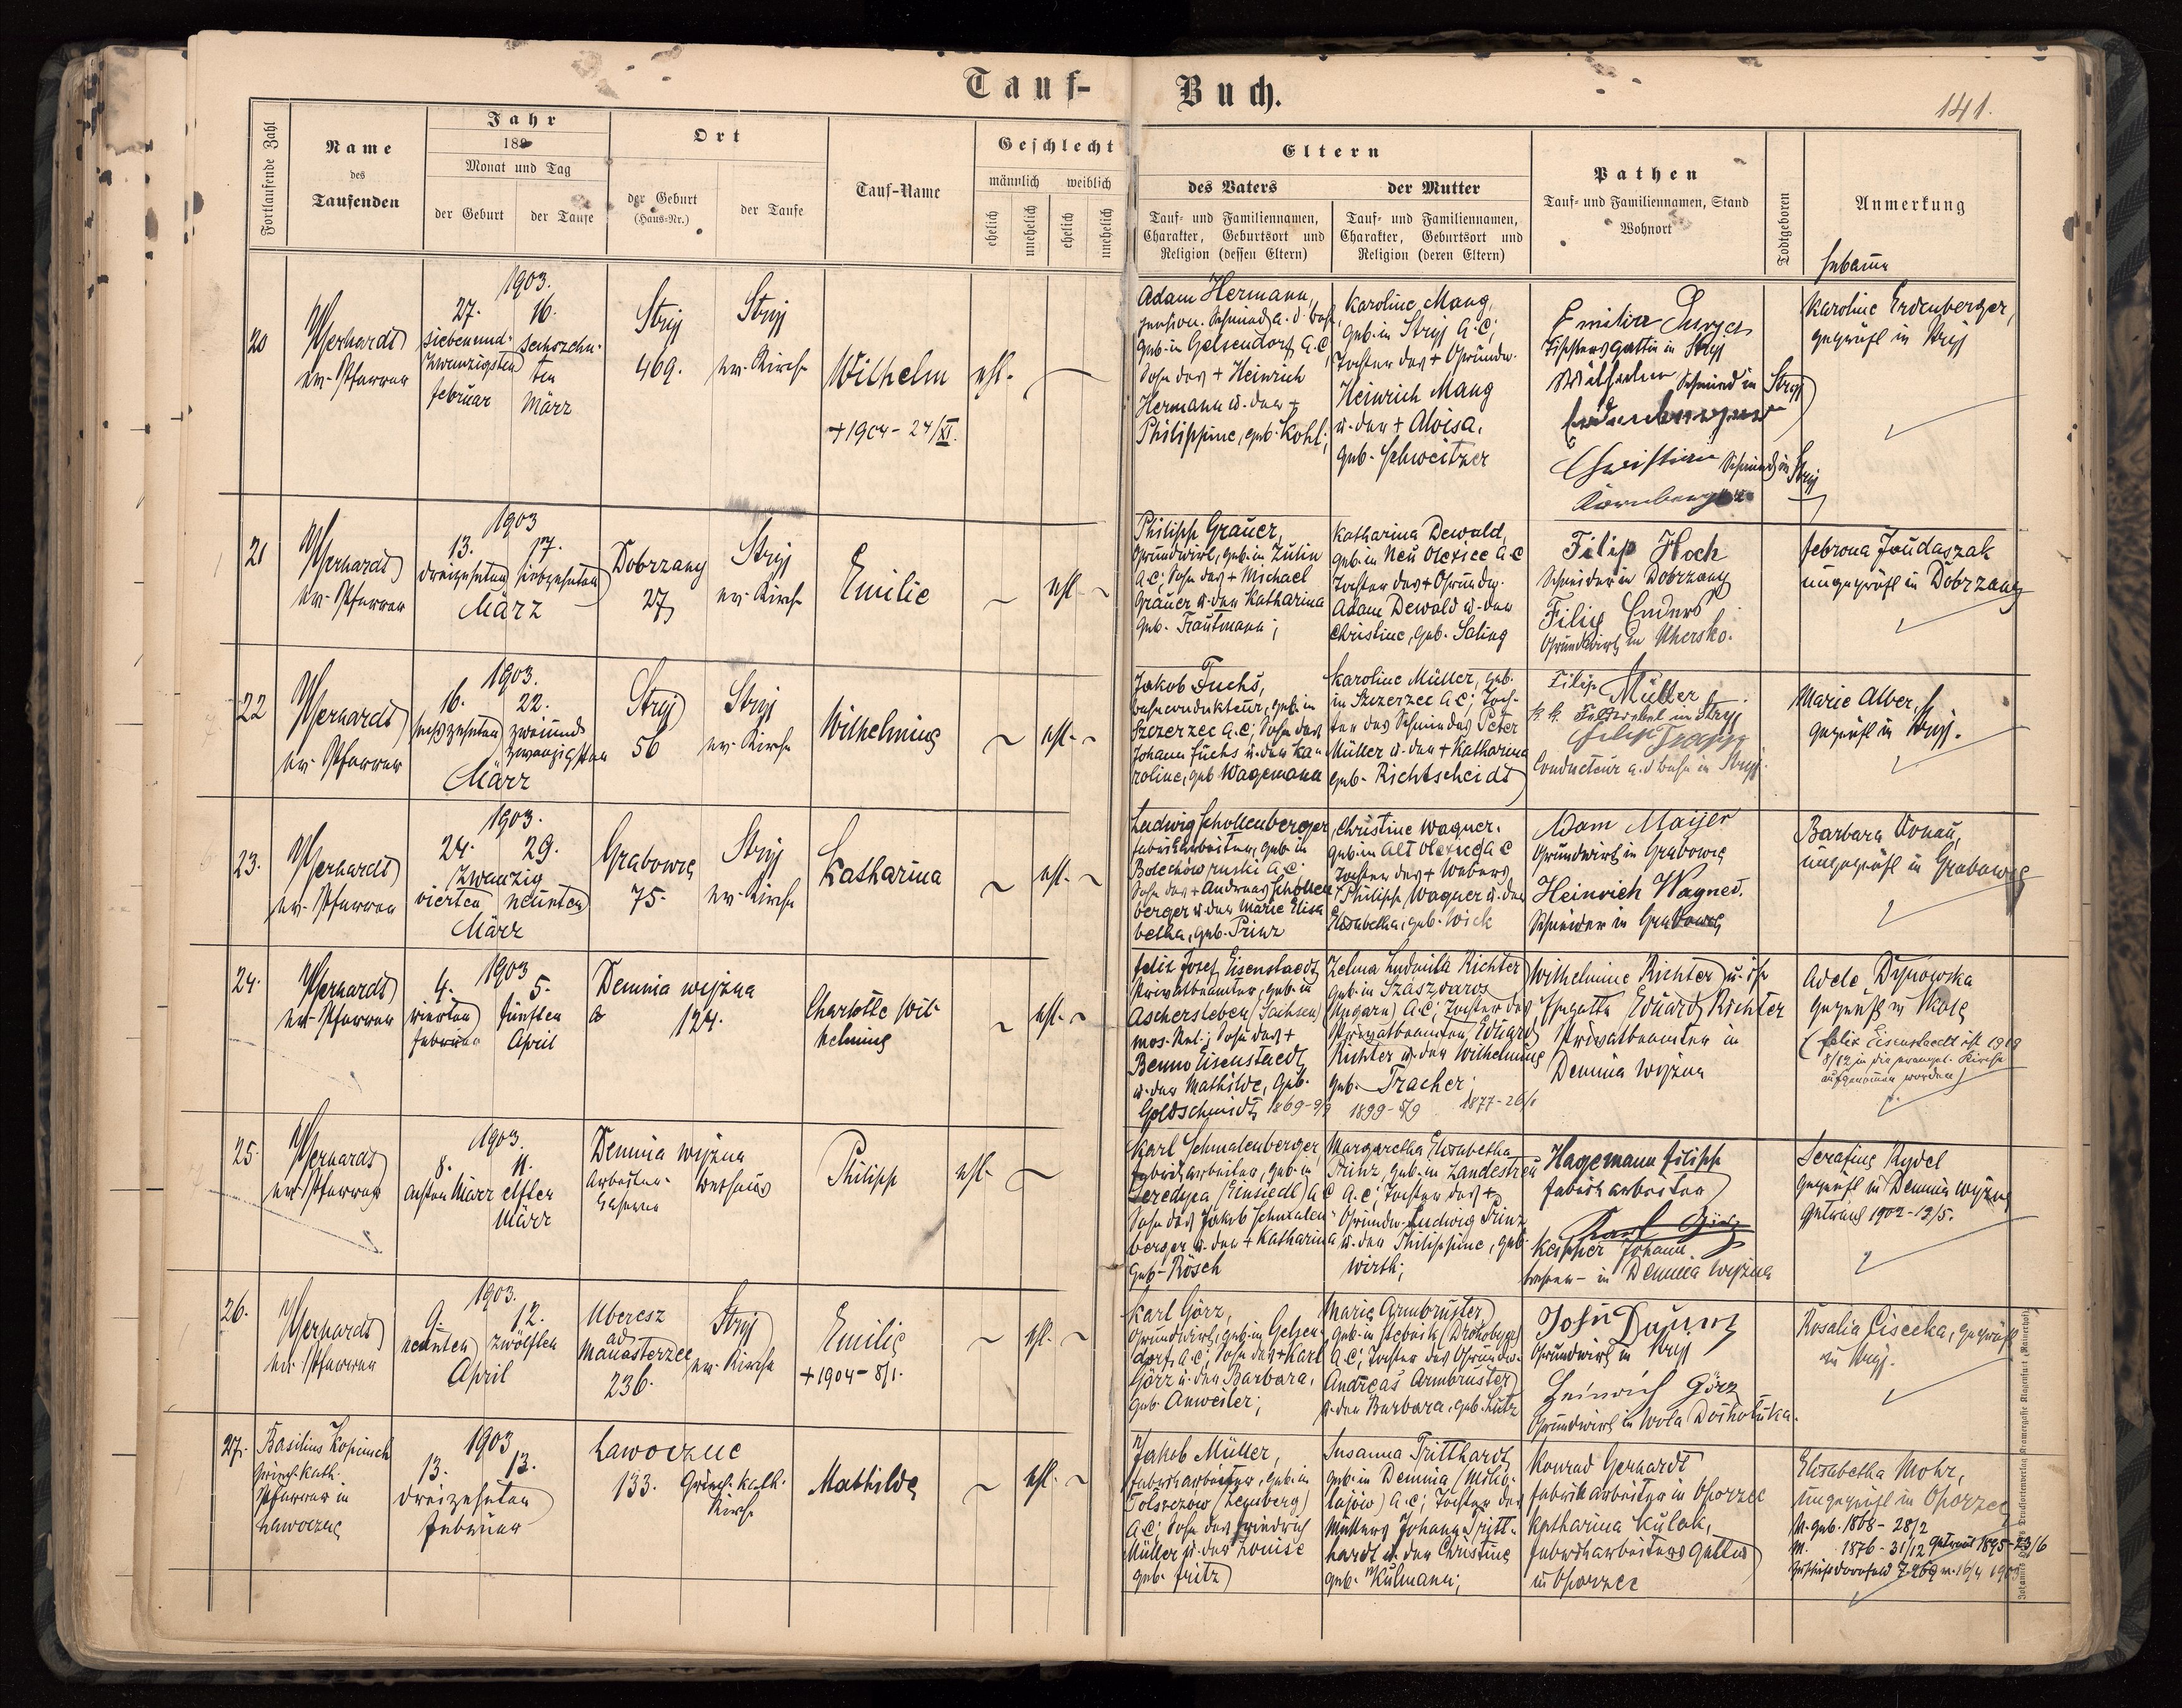 Tauf-Buch.
141.
Fortlaufende Zahl
Name
des
Taufenden
Jahr
188
Monat und Tag
der Geburt
der Taufe
Ort
der Geburt
(Haus-Nr.)
der Taufe
Tauf-Name
Geschlecht
männlich weiblich
ehelich
unehelich
ehelich
unehelich
Eltern
des Vaters
Tauf- und Familiennamen,
Charakter, Geburtsort und
Religion (dessen Eltern)
der Mutter
Tauf- und Familiennamen,
Charakter, Geburtsort und
Religion (deren Eltern)
Pathen
Tauf- und Familiennamen, Stand
Wohnort
Todtgeboren
Anmerkung
Hebamme
20
ev. Pfarrer
1903.
27. 16.
siebenund- sechszehn-
zwanzigsten ten
Februar März
Stryj
469.
Stryj
ev. Kirche
Wilhelm
+ 1904 - 24/XI.
ehl.
Adam Hermann,
geb. in Gelsendorf A.C.
Sohn des + Heinrich
Hermann u. der +
Philippine, geb. Kohl;
Karoline Mang,
geb. in Stryj A.C;
Tochter des + Grundw.
Heinrich Mang
u. der + Aloisa,
geb. Schweitzer
Emilia
gattin in Stryj
Wilhelm Schmied in Stryj
Christian Schmied in Stryj
Karoline Erdenberger,
geprüft in Stryj
21
ev. Pfarrer
1903
13. 17.
dreizehnten siebzehnten
März
Dobrzany
27
Stryj
ev. Kirche
Emilie
ehl.
Philipp Grauer,
Grundwirt, geb. in Zulin
A.C; Sohn des + Michael
Grauer u. der Katharina
geb. Trautmann;
Katharina Dewald,
geb. in Neu Olexiec A.C
Tochter des + Grundw.
Adam Dewald u. der
Christine, geb. Saling
Filip Hoch
Schneider in Dobrzany
Filip Enders
Grundwirth in Uhersko.
Febrona Joudaszak
ungeprüft in Dobrzany
22
ev. Pfarrer
1903.
16. 22.
sechszehnten zweiund-
zwanzigsten
März
Stryj
56
Stryj
ev. Kirche
Wilhelmine
ehl.
Jakob Fuchs,
Bahnconducteur, geb. in
Szczerzec A.C; Sohn des
Johann Fuchs u. der Ka-
roline, geb. Wagemann
Karoline Müller, geb.
in Szczerzec A.C; Toch-
ter des Schmiedes Peter
Müller u. der + Katharina
geb. Richtscheidt
Filip Müller
k. k. Feldwebel in Stryj
Conducteur a. d. Bahn in Stryj.
Marie Alber,
geprüft in Stryj.
23.
ev. Pfarrer
1903.
24. 29.
zwanzig
vierten neunten
März
Grabowce
75.
Stryj
ev. Kirche
Katharina
ehl.
Ludwig Schollenberger,
Fabriksarbeiter, geb. in
Bolechów ruski A.C.
Sohn des + Andreas Schollen
berger u. der Marie Elisa
betha, geb. Prinz
Christine Wagner,
geb. in Alt Olexiec A.C
Tochter des + Webers
Philipp Wagner u. der
Elisabetha, geb. Wick
Adam Maijer
Grundwirth in Grabowce
Heinrich Wagner.
Schneider in Grabowce
Barbara Donau,
ungeprüft in Grabowce
24.
ev. Pfarrer
1903
4. 5.
vierten fünften
Februar April
Demnia wyżna
124.
Charlotte Wil-
helmine
ehl.
Felix Josef Eisenstaedt
Privatbeamter, geb. in
Aschersleben (Sachsen)
mos. Rel.; Sohn des +
Benno Eisenstaedt
u. der Mathilde, geb.
Goldschmidt
Zelma Ludmila Richter
geb. in Szászvaros
(Ungarn) A.C; Tochter des
Privatbeamten Eduard
Richter u. der Wilhelmine
geb. Tracher;
Wilhelmine Richter u. ihr
Ehegatte Eduard Richter
Privatbeamter in
Demnia wyżna
Adele Dynowska
geprüft in Skole
(Felix Eisenstaedt ist
8/12 in die evangel. Kirche
aufgenommen worden)
25.
ev. Pfarrer
1903.
8. 11.
achten März elfter
März
Demnia wyżna
Arbeiter-
Philipp
ehl.
Karl Schmalenberger,
Fabriksarbeiter, geb. in
(Einsiedl) A.C
Sohn des Jakob Schmalen-
berger u. der + Katharina
geb. Rösch
Margaretha Elisabetha
Prinz, geb. in Landestreu
A.C; Tochter des +
Grundw. Ludwig Prinz
u. der Philippine, geb.
Wirth;
Hagemann Filipp
Fabriksarbeiter
Keipper Johann
in Demnia wyżna
Serafine Rydel
geprüft in Demnia wyżna
Getraut 1902 - 12/5.
26.
ev. Pfarrer
1903.
9. 12.
neunten zwölften
April
Uberesz
ad
Manasterzec
236.
Stryj
ev. Kirche
Emilie
+ 1904 - 8/1.
ehl.
Karl Görz,
Grundwirt, geb. in Gelsen-
dorf, A.C; Sohn des + Karl
Görz u. der Barbara,
geb. Anweiler;
Marie Armbruster,
geb. in Stebnik (Drohobycz)
A.C; Tochter des Grundw.
Andreas Armbruster
u. der Barbara, geb. Lutz
Grundwirth in Stryj
Heinrich Görz
Grundwirth in Wola Dołhołucka.
Rosalia Cisecka, geprüft
in Stryj.
27.
Basilius Kopiench
Griech. kath.
Pfarrer in
Lawoczne
1903
13. 13.
dreizehnten
Februar
Lawoczne
133.
Griech. kath.
Kirche
Mathilde
ehl.
Jakob Müller,
Fabriksarbeiter, geb. in
(Lemberg)
A.C; Sohn des Friedrich
Müller u. der Louise
geb. Fritz
Susanna Tritthardt
geb. in Demnia (Miko-
łajów) A.C; Tochter des
Müllers Johann Tritt-
hardt u. der Christine
geb. Kulmann;
Konrad Gerhardt
Fabriksarbeiter in Oporzec
Katharina Kulak,
Fabriksarbeiters Gattin
in Oporzec
Elisabetha Mohr,
ungeprüft in Oporzec
V. geb. 1868 - 28/2
M. 1876 - 31/12 Getraut 1895 - 23/6